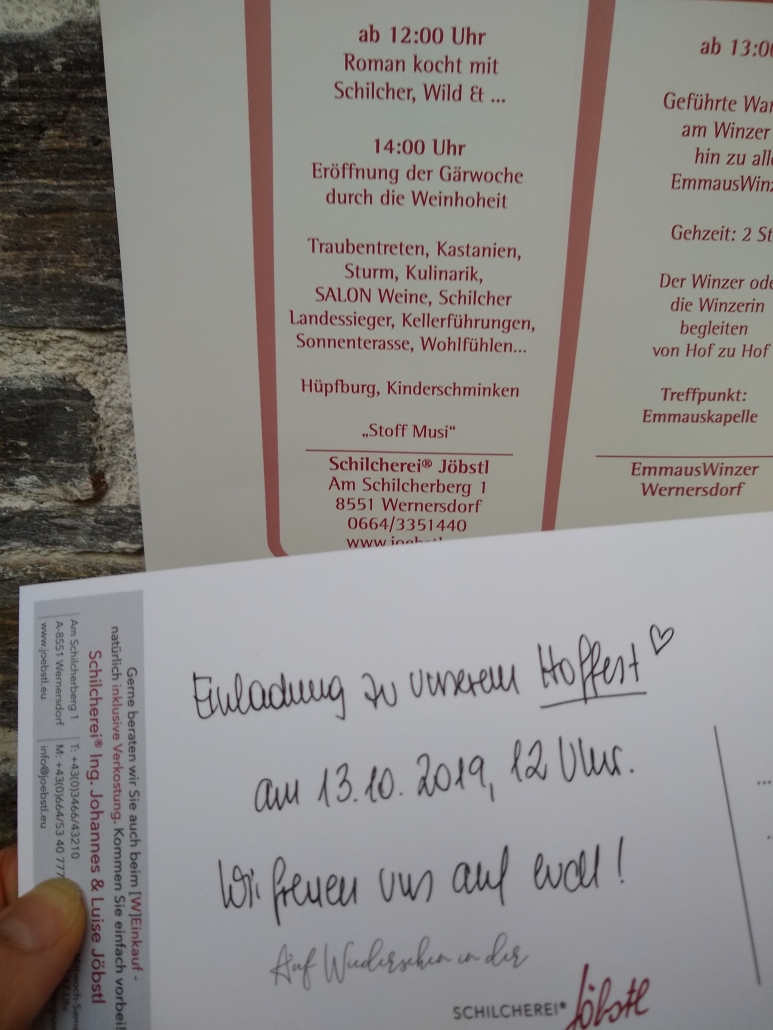 ab 12:00 Uhr
Roman kocht mit
Schilcher, Wild & ...
14:00 Uhr
Eröffnung der Gärwoche
durch die Weinhoheit
Traubentreten, Kastanien,
Sturm, Kulinarik,
SALON Weine, Schilcher
Landessieger, Kellerführungen,
Sonnenterasse, Wohlfühlen...
Hüpfburg, Kinderschminken
„Stoff Musi“
Schilcherei® Jöbstl
Am Schilcherberg 1
8551 Wernersdorf
0664/3351440
ab 13:0
Geführte
am Winzer
hin zu
EmmausWinz
Gehzeit: 2 St
Der Winzer
die Winzerin
begleiten
von Hof zu Hof
Treffpunkt:
Emmauskapelle
EmmausWinzer
Wernersdorf
Einladung zu unserem Hoffest ♡
am 13.10.2019, 12 Uhr.
Wir freuen uns auf euch!
Auf Wiedersehen in der
SCHILCHEREI® Jöbstl
Gerne beraten wir Sie auch beim [W]Einkauf -
natürlich inklusive Verkostung. Kommen Sie einfach vorbei!
Schilcherei® Ing. Johannes & Luise Jöbstl
Am Schilcherberg 1
A-8551 Wernersdorf
www.joebstl.eu
T: +43(0)3466/43210
M: +43(0)664/53 40 777
info@joebstl.eu